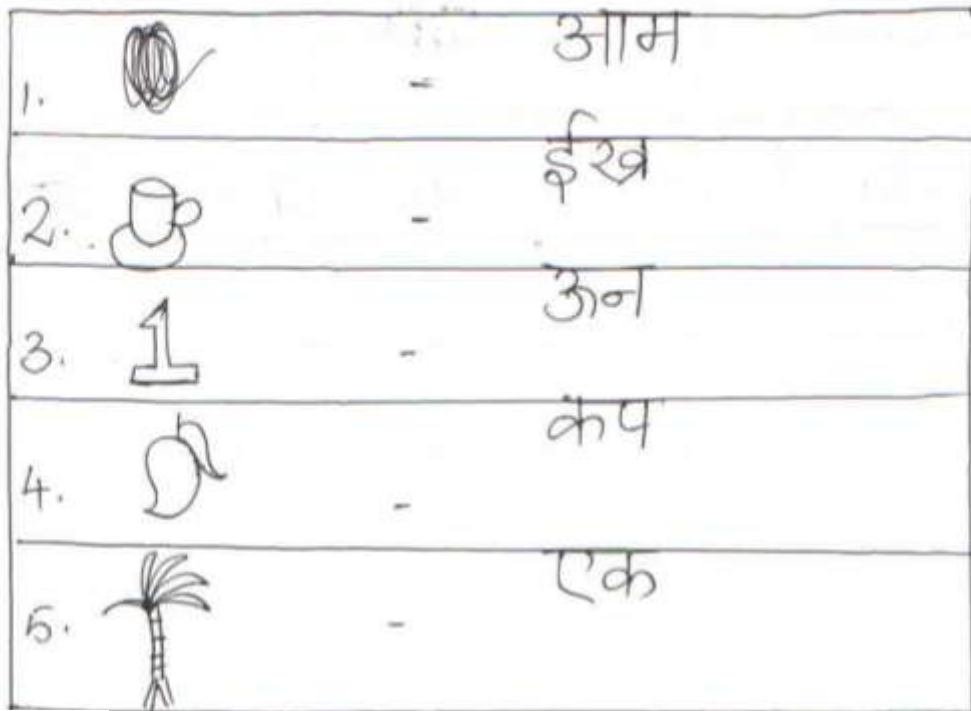 1. - आम
2. - ईख
3. 1 - ऊन
4. - कप
5. - एक